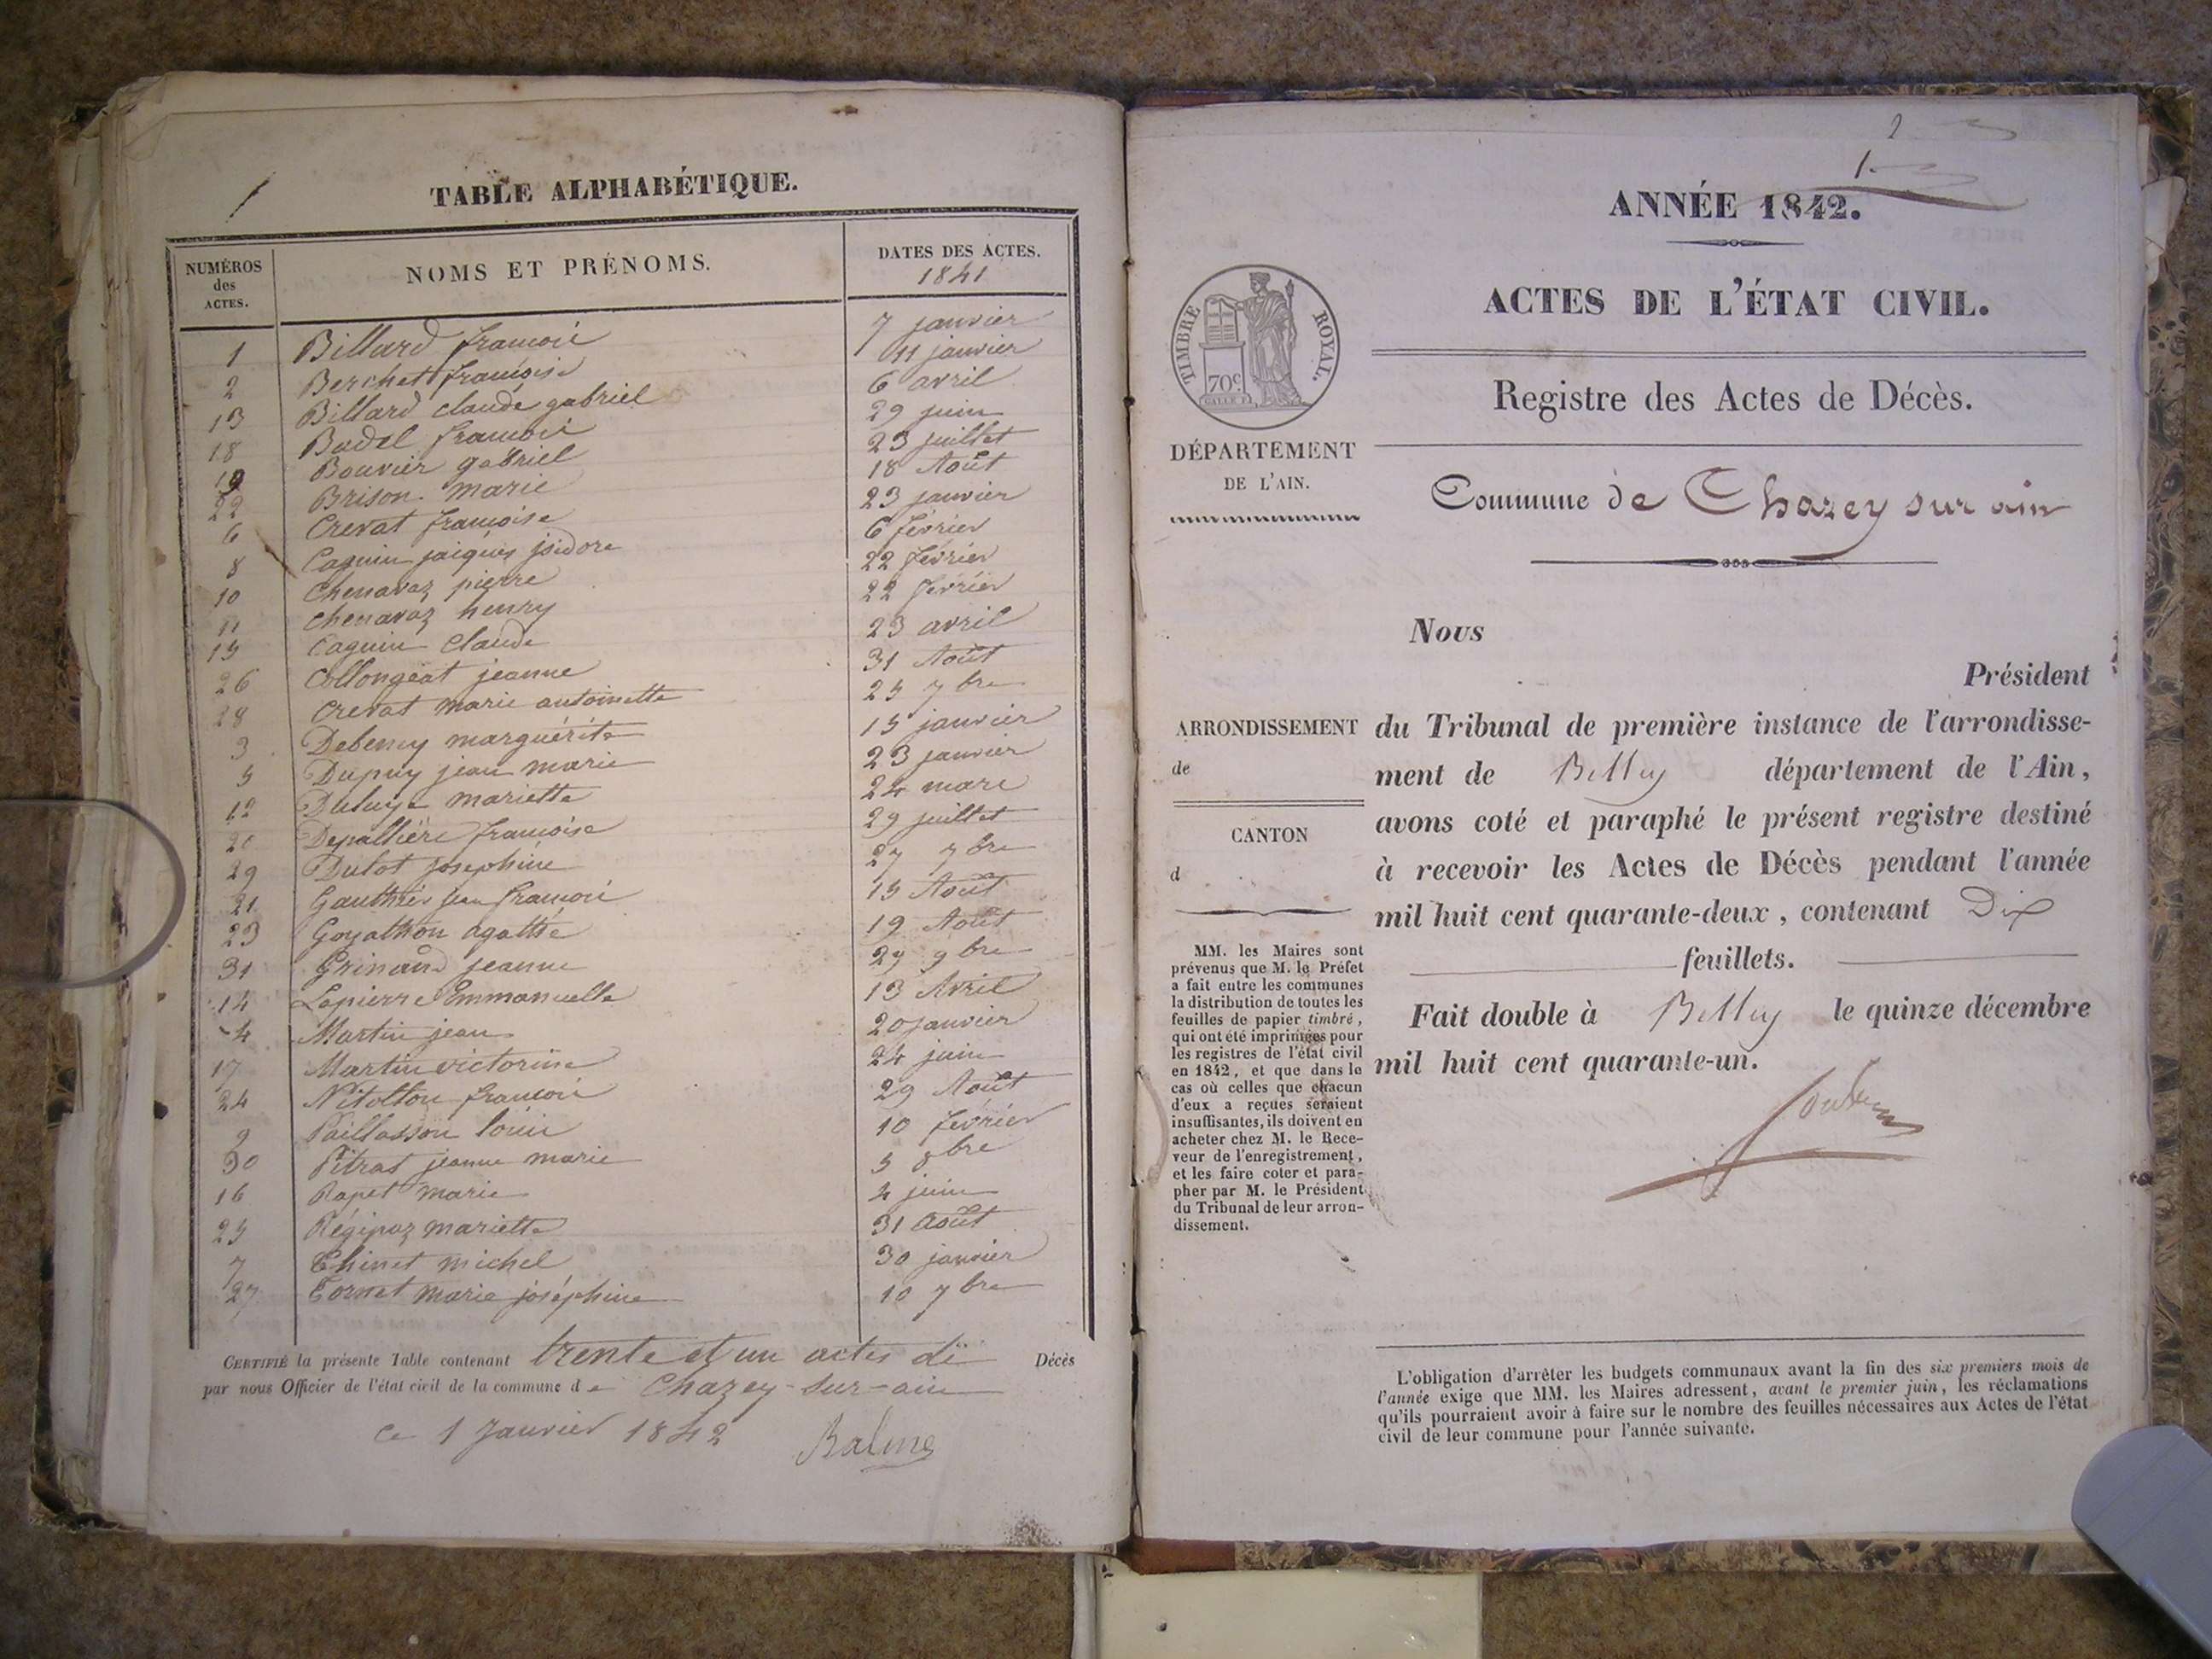 TABLE ALPHABÉTIQUE.
NUMÉROS des ACTES. NOMS ET PRÉNOMS. DATES DES ACTES. 1841
1 Billard francois 7 janvier
2 Berchet francoise 11 janvier
13 Billard claude gabriel 6 avril
18 Budel francois 29 juin
19 Bouvier gabriel 23 juillet
22 Brison marie 18 Août
6 Crevat francoise 23 janvier
8 Caguin jaiques jsidore 6 février
10 Chenavaz pierre 22 février
11 chenavaz henry 22 février
15 Caguin Claude 23 avril
26 Collongeat jeanne 31 Août
28 Crevat marie antoinette 25 7bre
3 Debeney marguérite 15 janvier
5 Dupuy jean marie 23 janvier
12 mariette 24 mars
20 Depallière francoise 29 juillet
29 Dulot josephine 27 7bre
21 Gauthier jean francois 15 Août
23 Goyathon Agathe 19 Août
31 Grinand jeanne 27 9bre
14 Lapierre Emmanuelle 13 Avril
4 Martin jean 20 janvier
17 Martin victorine 24 juin
24 Nitollon francois 29 Août
9 Paillasson louis 10 février
30 Pitrat jeanne marie 5 8bre
16 Rapet marie 4 juin
25 Régipaz mariette 31 août
7 Thinet michel 30 janvier
27 Tornet marie joséphine 10 7bre
CERTIFIÉ la présente Table contenant trente et un actes de Décès
par nous Officier de l'état civil de la commune de Chazey-sur-ain
ce 1 Janvier 1842 Balme
2
1.
ANNÉE 1842.
ACTES DE L'ÉTAT CIVIL.
TIMBRE ROYAL.
70c
Registre des Actes de Décès.
DÉPARTEMENT
DE L'AIN.
Commune de Chazey sur ain
Nous
Président
ARRONDISSEMENT
de
CANTON
d
du Tribunal de première instance de l'arrondisse-
ment de Belley département de l'Ain,
avons coté et paraphé le présent registre destiné
à recevoir les Actes de Décès pendant l'année
mil huit cent quarante-deux, contenant Dix
feuillets.
Fait double à Belley le quinze décembre
mil huit cent quarante-un.
MM. les Maires sont
prévenus que M. le Préfet
a fait entre les communes
la distribution de toutes les
feuilles de papier timbré,
qui ont été imprimées pour
les registres de l'état civil
en 1842, et que dans le
cas où celles que chacun
d'eux a reçues seraient
insuffisantes, ils doivent en
acheter chez M. le Rece-
veur de l'enregistrement,
et les faire coter et para-
pher par M. le Président
du Tribunal de leur arron-
dissement.
L'obligation d'arrêter les budgets communaux avant la fin des six premiers mois de
l'année exige que MM. les Maires adressent, avant le premier juin, les réclamations
qu'ils pourraient avoir à faire sur le nombre des feuilles nécessaires aux Actes de l'état
civil de leur commune pour l'année suivante.